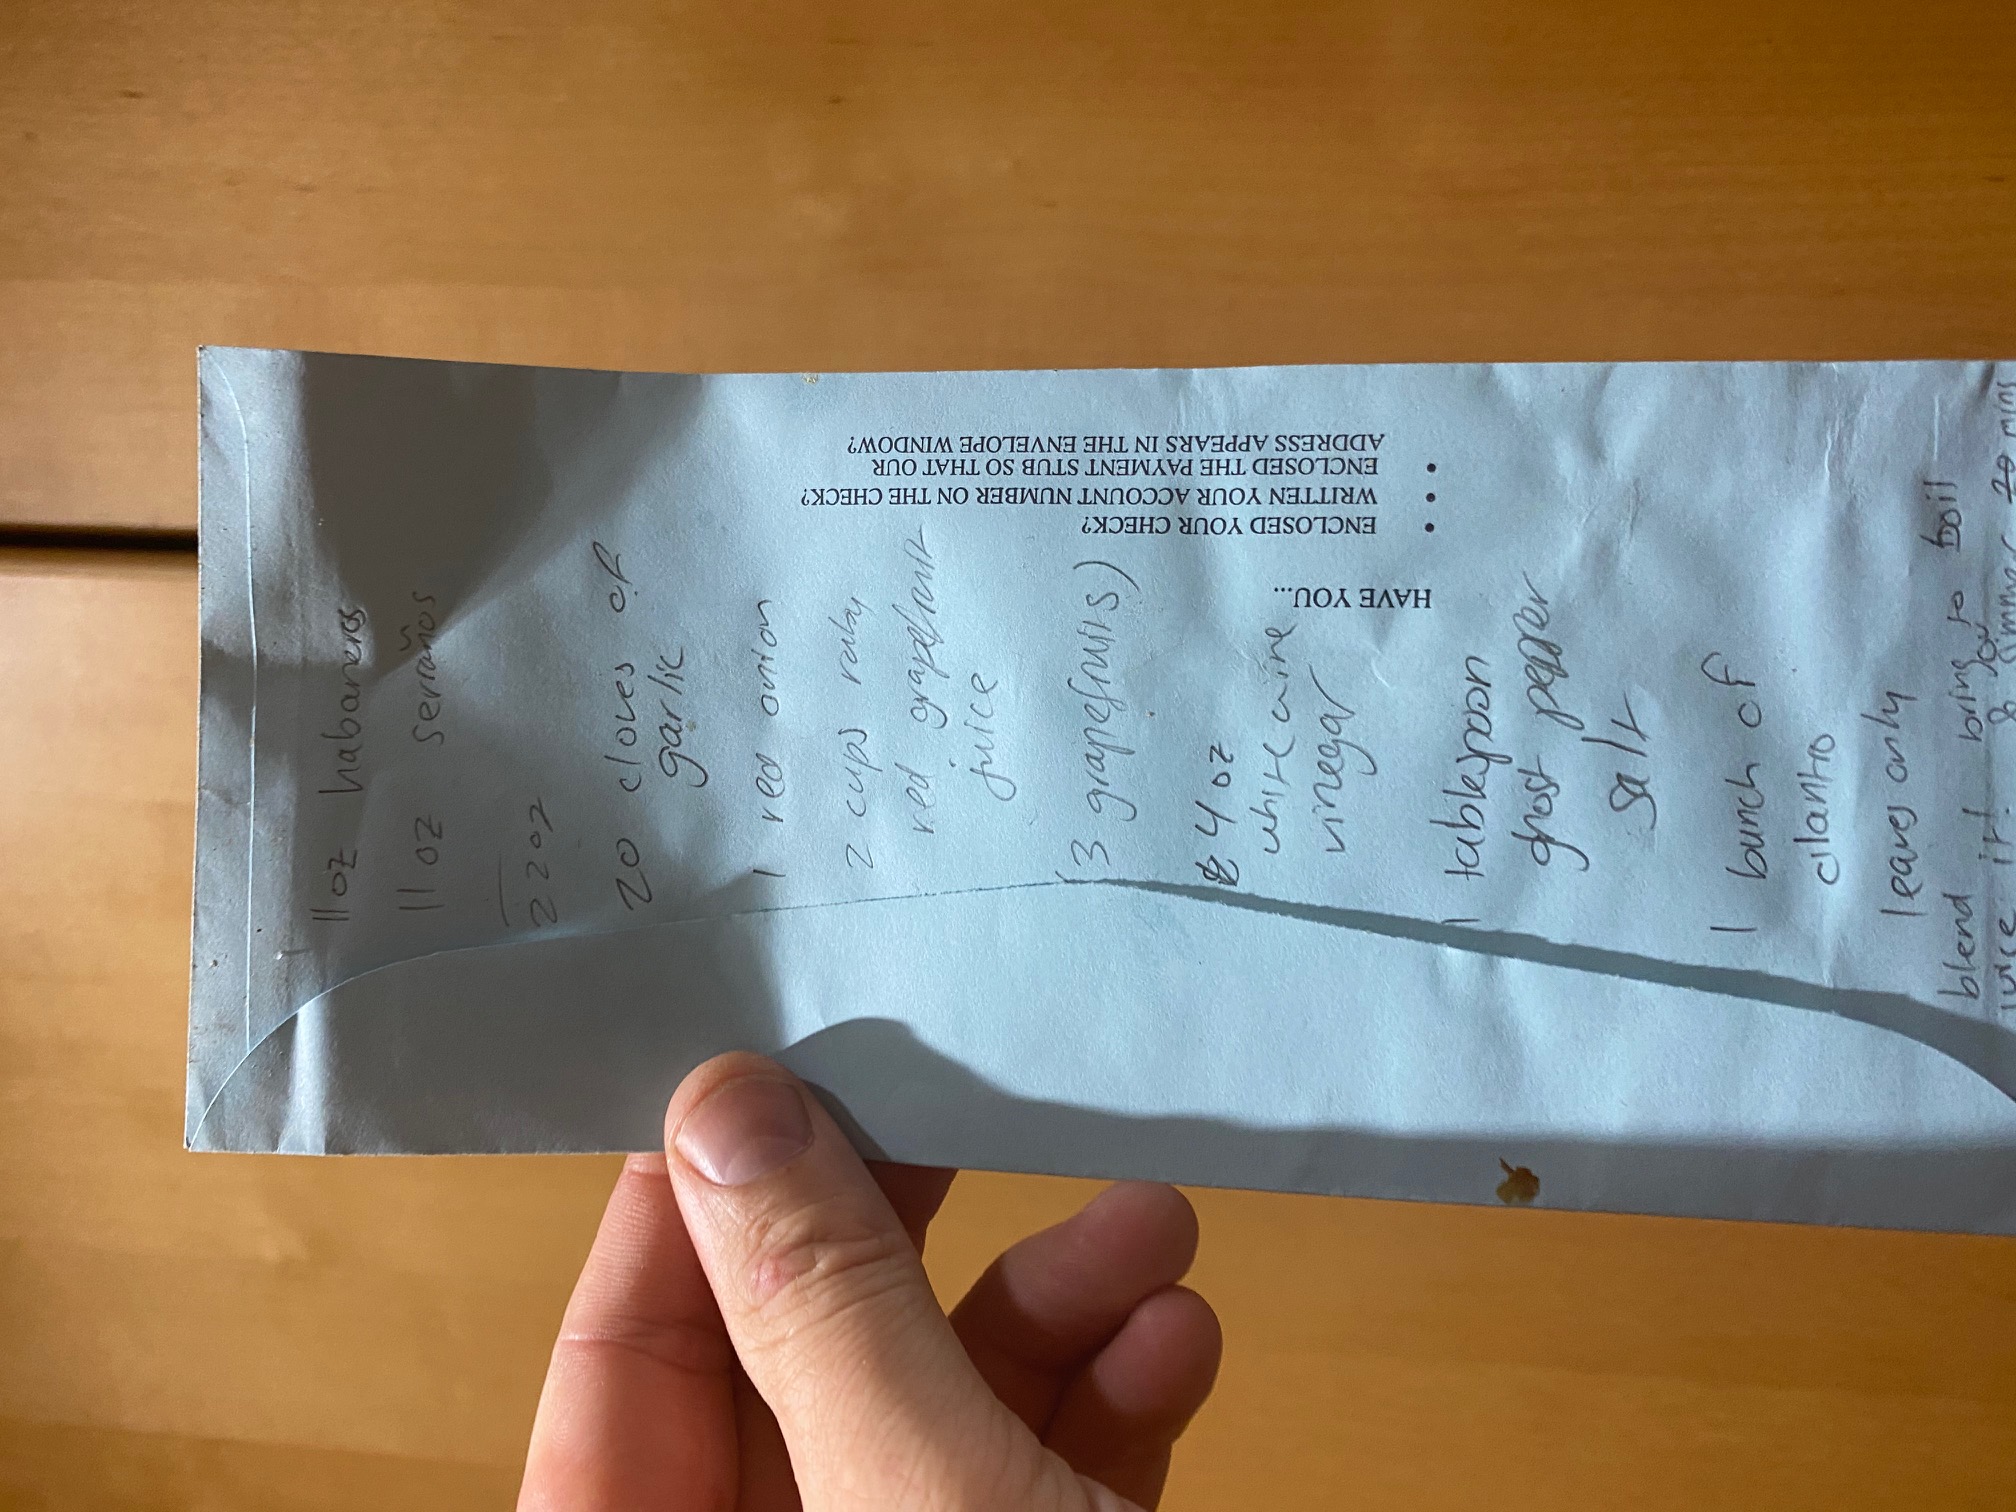 11oz habaneros
11 oz serraños
22oz
20 cloves of
garlic
1 red onion
2 cups ruby
red grapefruit
juice
(3 grapefruits)
4 oz
white wine
vinegar
1 tablespoon
ghost pepper
salt
1 bunch of
cilantro
leaves only
blend bring to boil
HAVE YOU...
• ENCLOSED YOUR CHECK?
• WRITTEN YOUR ACCOUNT NUMBER ON THE CHECK?
• ENCLOSED THE PAYMENT STUB SO THAT OUR
ADDRESS APPEARS IN THE ENVELOPE WINDOW?